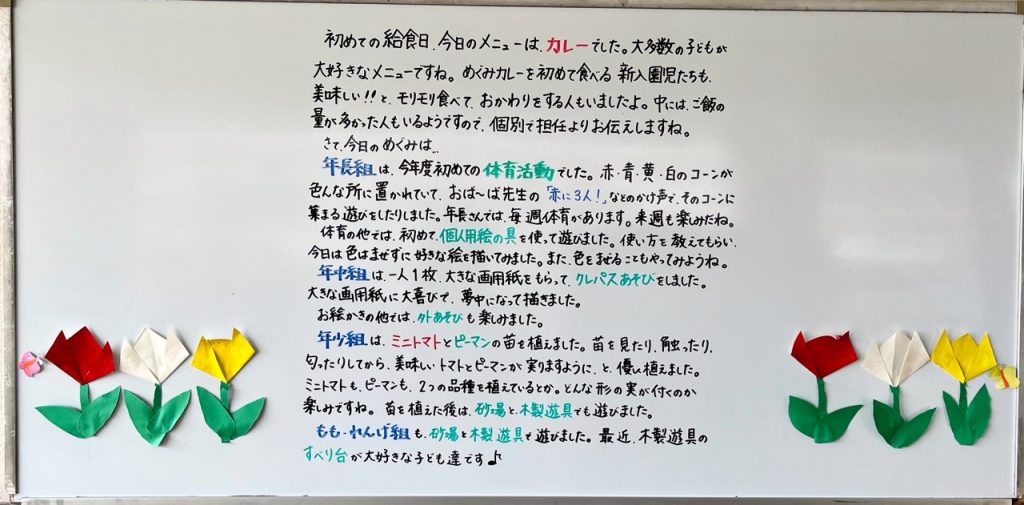 初めての給食日、今日のメニューは、カレーでした。大多数の子どもが
大好きなメニューですね。めぐみカレーを初めて食べる新入園児たちも、
美味しい!!と、モリモリ食べて、おかわりをする人もいましたよ。中には、ご飯の
量が多かった人もいるようですので、個別で担任よりお伝えしますね。
さて、今日のめぐみは…
年長組は、今年度初めての体育活動でした。赤・青・黄・白のコーンが
色んな所に置かれていて、おば〜ば先生の「赤に3人!」などのかけ声で、そのコーンに
集まる遊びをしたりしました。年長さんでは、毎週体育があります。来週も楽しみだね。
体育の他では、初めて、個人用絵の具を使って遊びました。使い方を教えてもらい、
今日は色はまぜずに好きな絵を描いてみました。また、色をまぜることもやってみようね。
年中組は、一人1枚、大きな画用紙をもらって、クレパスあそびをしました。
大きな画用紙に大喜びで、夢中になって描きました。
お絵かきの他では、外あそびも楽しみました。
年少組は、ミニトマトとピーマンの苗を植えました。苗を見たり、触ったり、
匂ったりしてから、美味しいトマトとピーマンが実りますように、と、優しく植えました。
ミニトマトも、ピーマンも、2つの品種を植えているとか。どんな形の実が付くのか
楽しみですね。苗を植えた後は、砂場と、木製遊具でも遊びました。
もも・れんげ組も、砂場と木製遊具で遊びました。最近、木製遊具の
すべり台が大好きな子ども達です♪